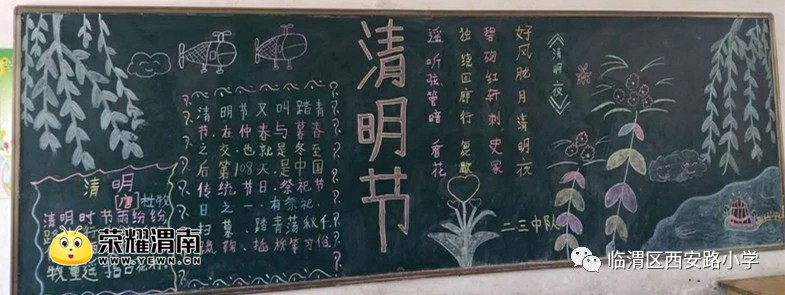 清明
杜牧
清明时节雨纷纷
路 行
牧童遥指杏花村
清明节又叫踏青
节 在仲春与暮春
之 也就是冬至
后 第108天 是 国
传统节
日之一 有祭祀
扫墓 踏青 荡秋千
等习俗
清明节
《清明夜》
好风胧月清明夜
碧砌红轩刺史家
独绕回廊行复歇
遥听弦管暗看花
二三中队
荣耀渭南
WWW.YEWN.CN
临渭区西安路小学